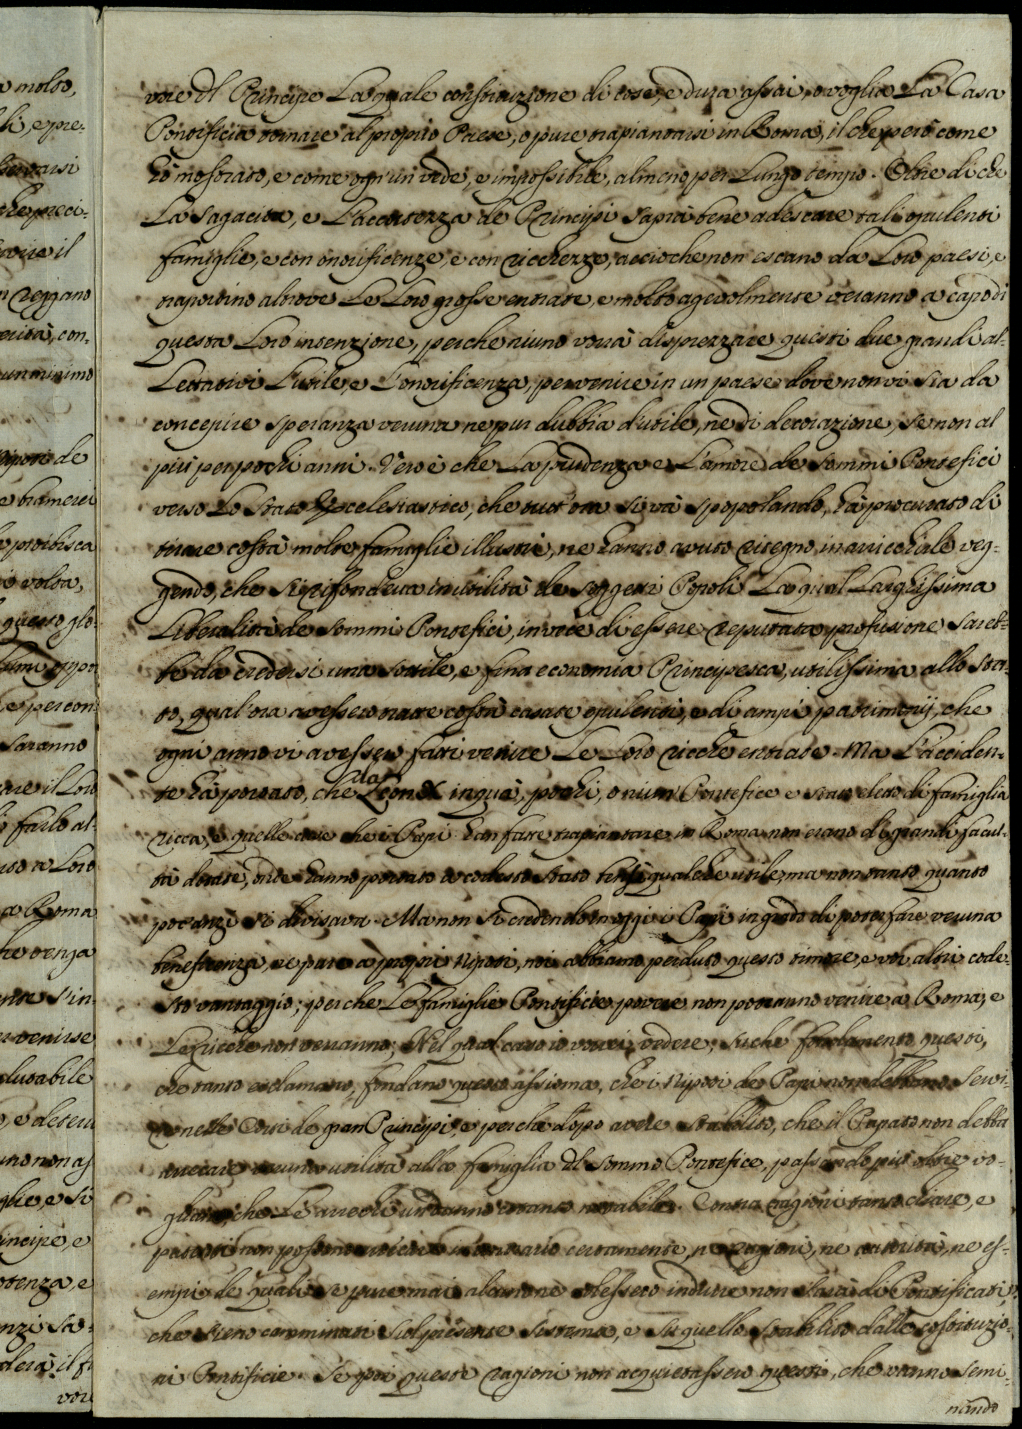 vore del Principe La quale constituzione di cose, e dura assai, o voglia La Casa
Pontificia tornare al proprio Paese, o pure trapiantarsi in Roma, il che però come
hò mostrato, e come ogn'un vede, e impossibile, almeno per Lungo tempo. Oltre di che
La sagacità, e L'accortezza de Principi saprà bene adescare tali opulenti
famiglie, e con onorificenze, e con ricchezze, acciòche non escano da Loro paesi, e
trapportino altrove Le Loro grosse entrate, e molto agevolmente verranno a capo di
questa Loro intenzione, perche niuno vorrà disprezzare questi due grandi al-
Lettativi L'utile, e L'onorificenza, per venire in un paese dove non vi sia da
concepire speranza veruna ne pur dubbia d'utile, ne di decorazione, se non al
più per pochi anni. Vero è che La prudenza e L'amore de Sommi Pontefici
verso Lo Stato Ecclesiastico, che tutt'ora si và spopolando, hà procurato di
tirare costà molte famiglie illustri, ne hanno avuto ritegno in arricchirle veg-
gendo, che si rifondeva in utilità de soggetti Popoli La qual Larghissima
Liberalità de Sommi Pontefici, in vece di essere reputata profusione sareb-
be da credersi una sottile, e fina economia Principesca, utilissima allo Sta-
to, qual'ora avessero tratte costà casate opulenti, e di ampi patrimonij, che
ogni anno vi avesser fatti venire Le Loro ricche entrate. Ma L'acciden-
te hà portato, che da Leon X in quà, pochi, o niun Pontefice e stato eletto di famiglia
ricca, e quelle che i Papi han fatte trapiantare in Roma non erano di grandi facul-
tà dotate, onde hanno portato a codesto Stato bensì qualche utile, ma non tanto quanto
poc'anzi si divisava. Ma non si credendo oggi i Papi in grado di poter fare veruna
beneficenza, ne pure a proprii Nipoti, noi abbiamo perduto questo timore, e voi altri code-
sto vantaggio; perche Le famiglie Pontificie povere non potranno venire a Roma, e
Le ricche non verranno; Nel qual caso io vorrei vedere, su che fondamento questi,
che tanto esclamano, fondano questo assioma, che i Nipoti de Papi non debbano servi-
re nelle Corti de gran Principi, e perche dopo avere stabilito, che il Papato non debba
arrecare veruna utilità alla famiglia del Sommo Pontefice, passando più oltre vo-
gliano, che Le arrechi un danno tanto notabile. Contra ragioni tanto chiare, e
patenti non possono certamente, ne ragioni, ne autorità, ne es-
empii de quali se pure mai alcun ne volessero indurre non sarà di Pontificati,
che sieno camminati sul presente sistema, e su quello stabilito dalle costituzio-
ni Pontificie. Se poi queste ragioni non acquietassero questi, che vanno semi-
nando